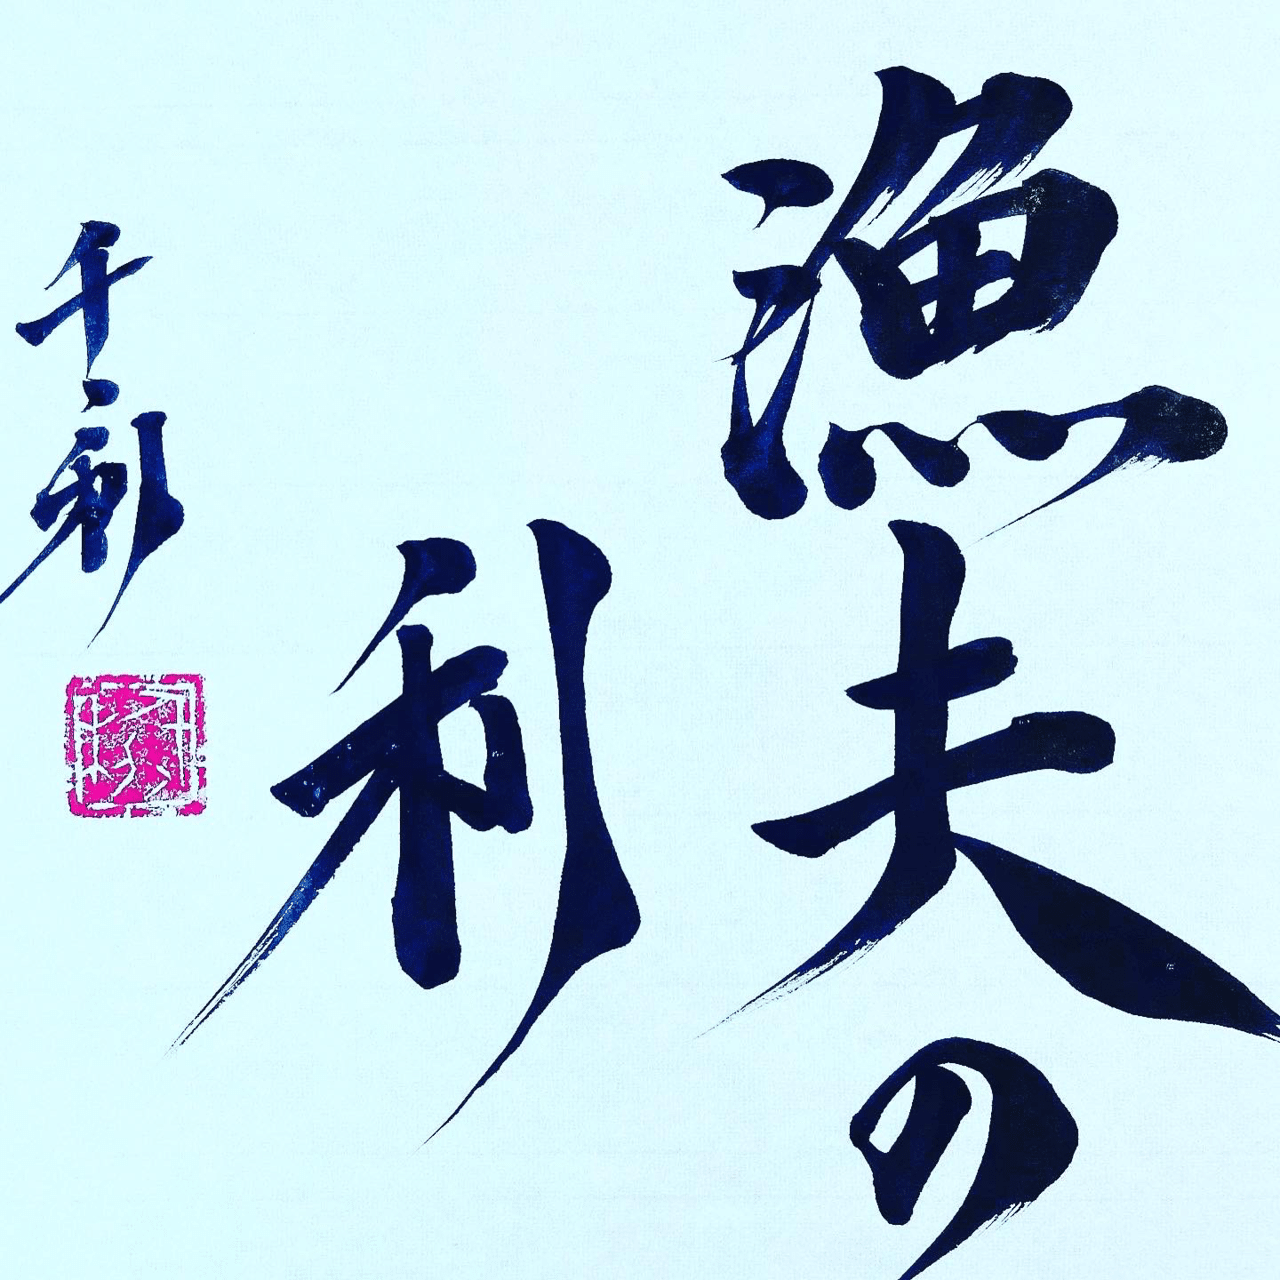 漁夫の
利
千利